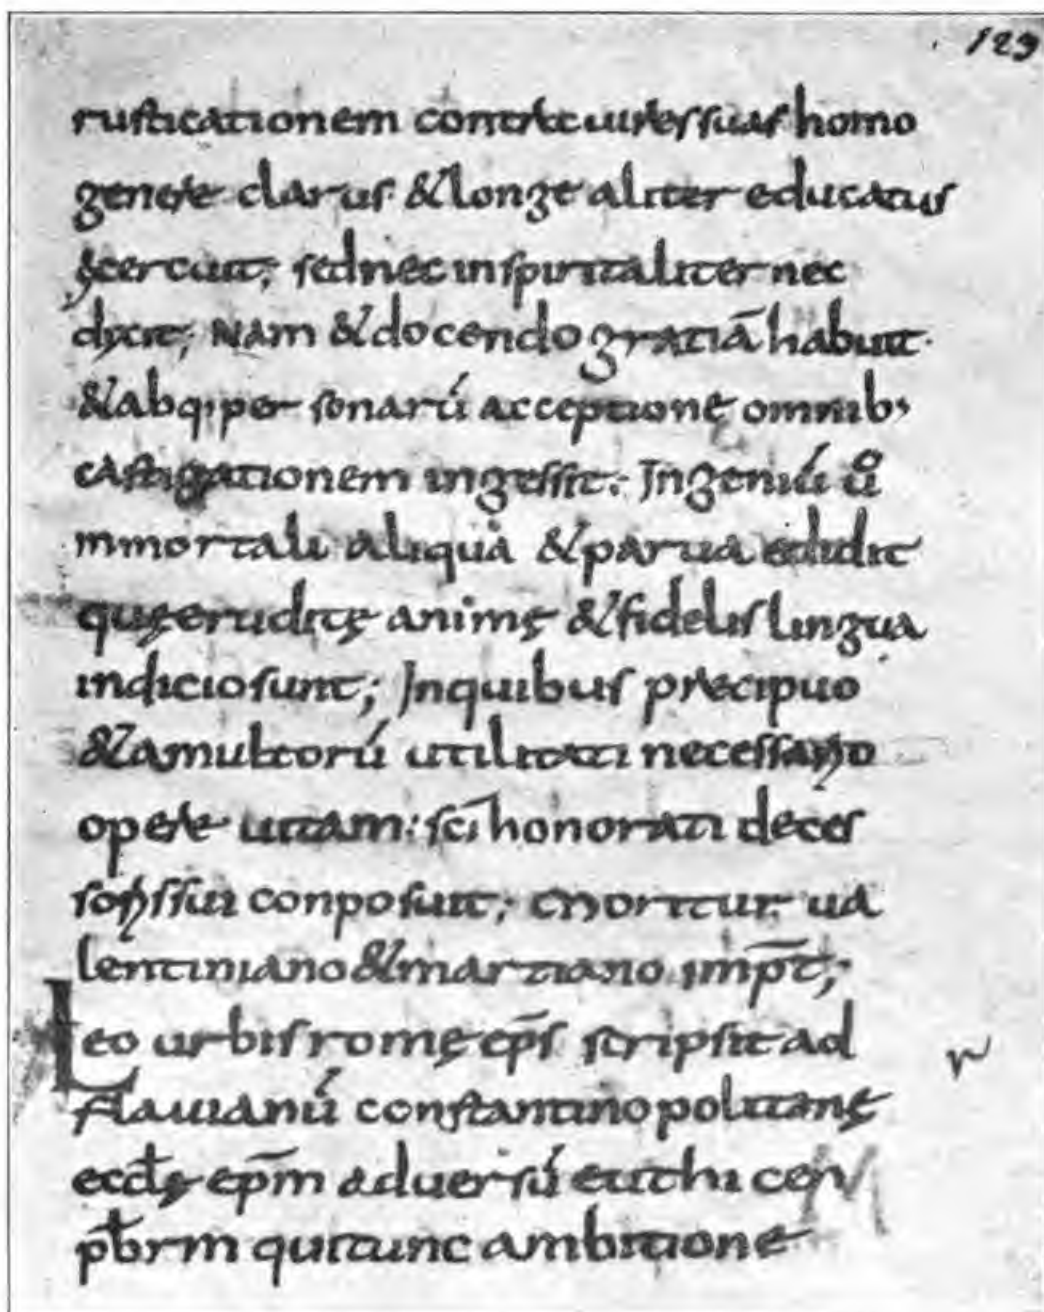 129
rusticationem contra uires suas homo
genere clarus· & longe aliter educatus
exercuit; sed nec inspiritaliter nec
dixit; Nam & docendo gratiā habuit·
& absq; personarū acceptione omnib;
castigationem ingessit; Ingeniū ū
inmortali aliqua & parua edidit
quę eruditę animę & fidelis lingua
indicio sunt; In quibus precipuo
& a multorū utilitati necessario
opere uitam: sc̄i honorati deces
soris sui conposuit; Moritur ua
lentiniano & martiano imp̄t;
Leo urbis romę ep̄s scripsit ad
flauianū constantinopolitanę
eccl̄ę ep̄m aduersū euthicen
pb̄rm qui tunc ambitione